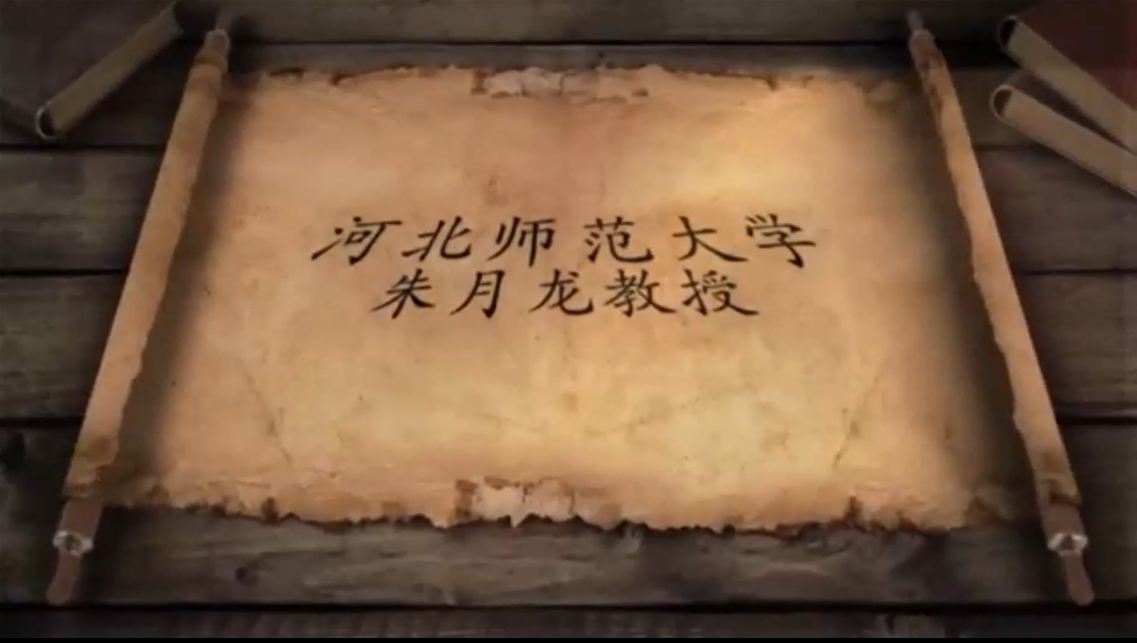 河北师范大学
朱月龙教授